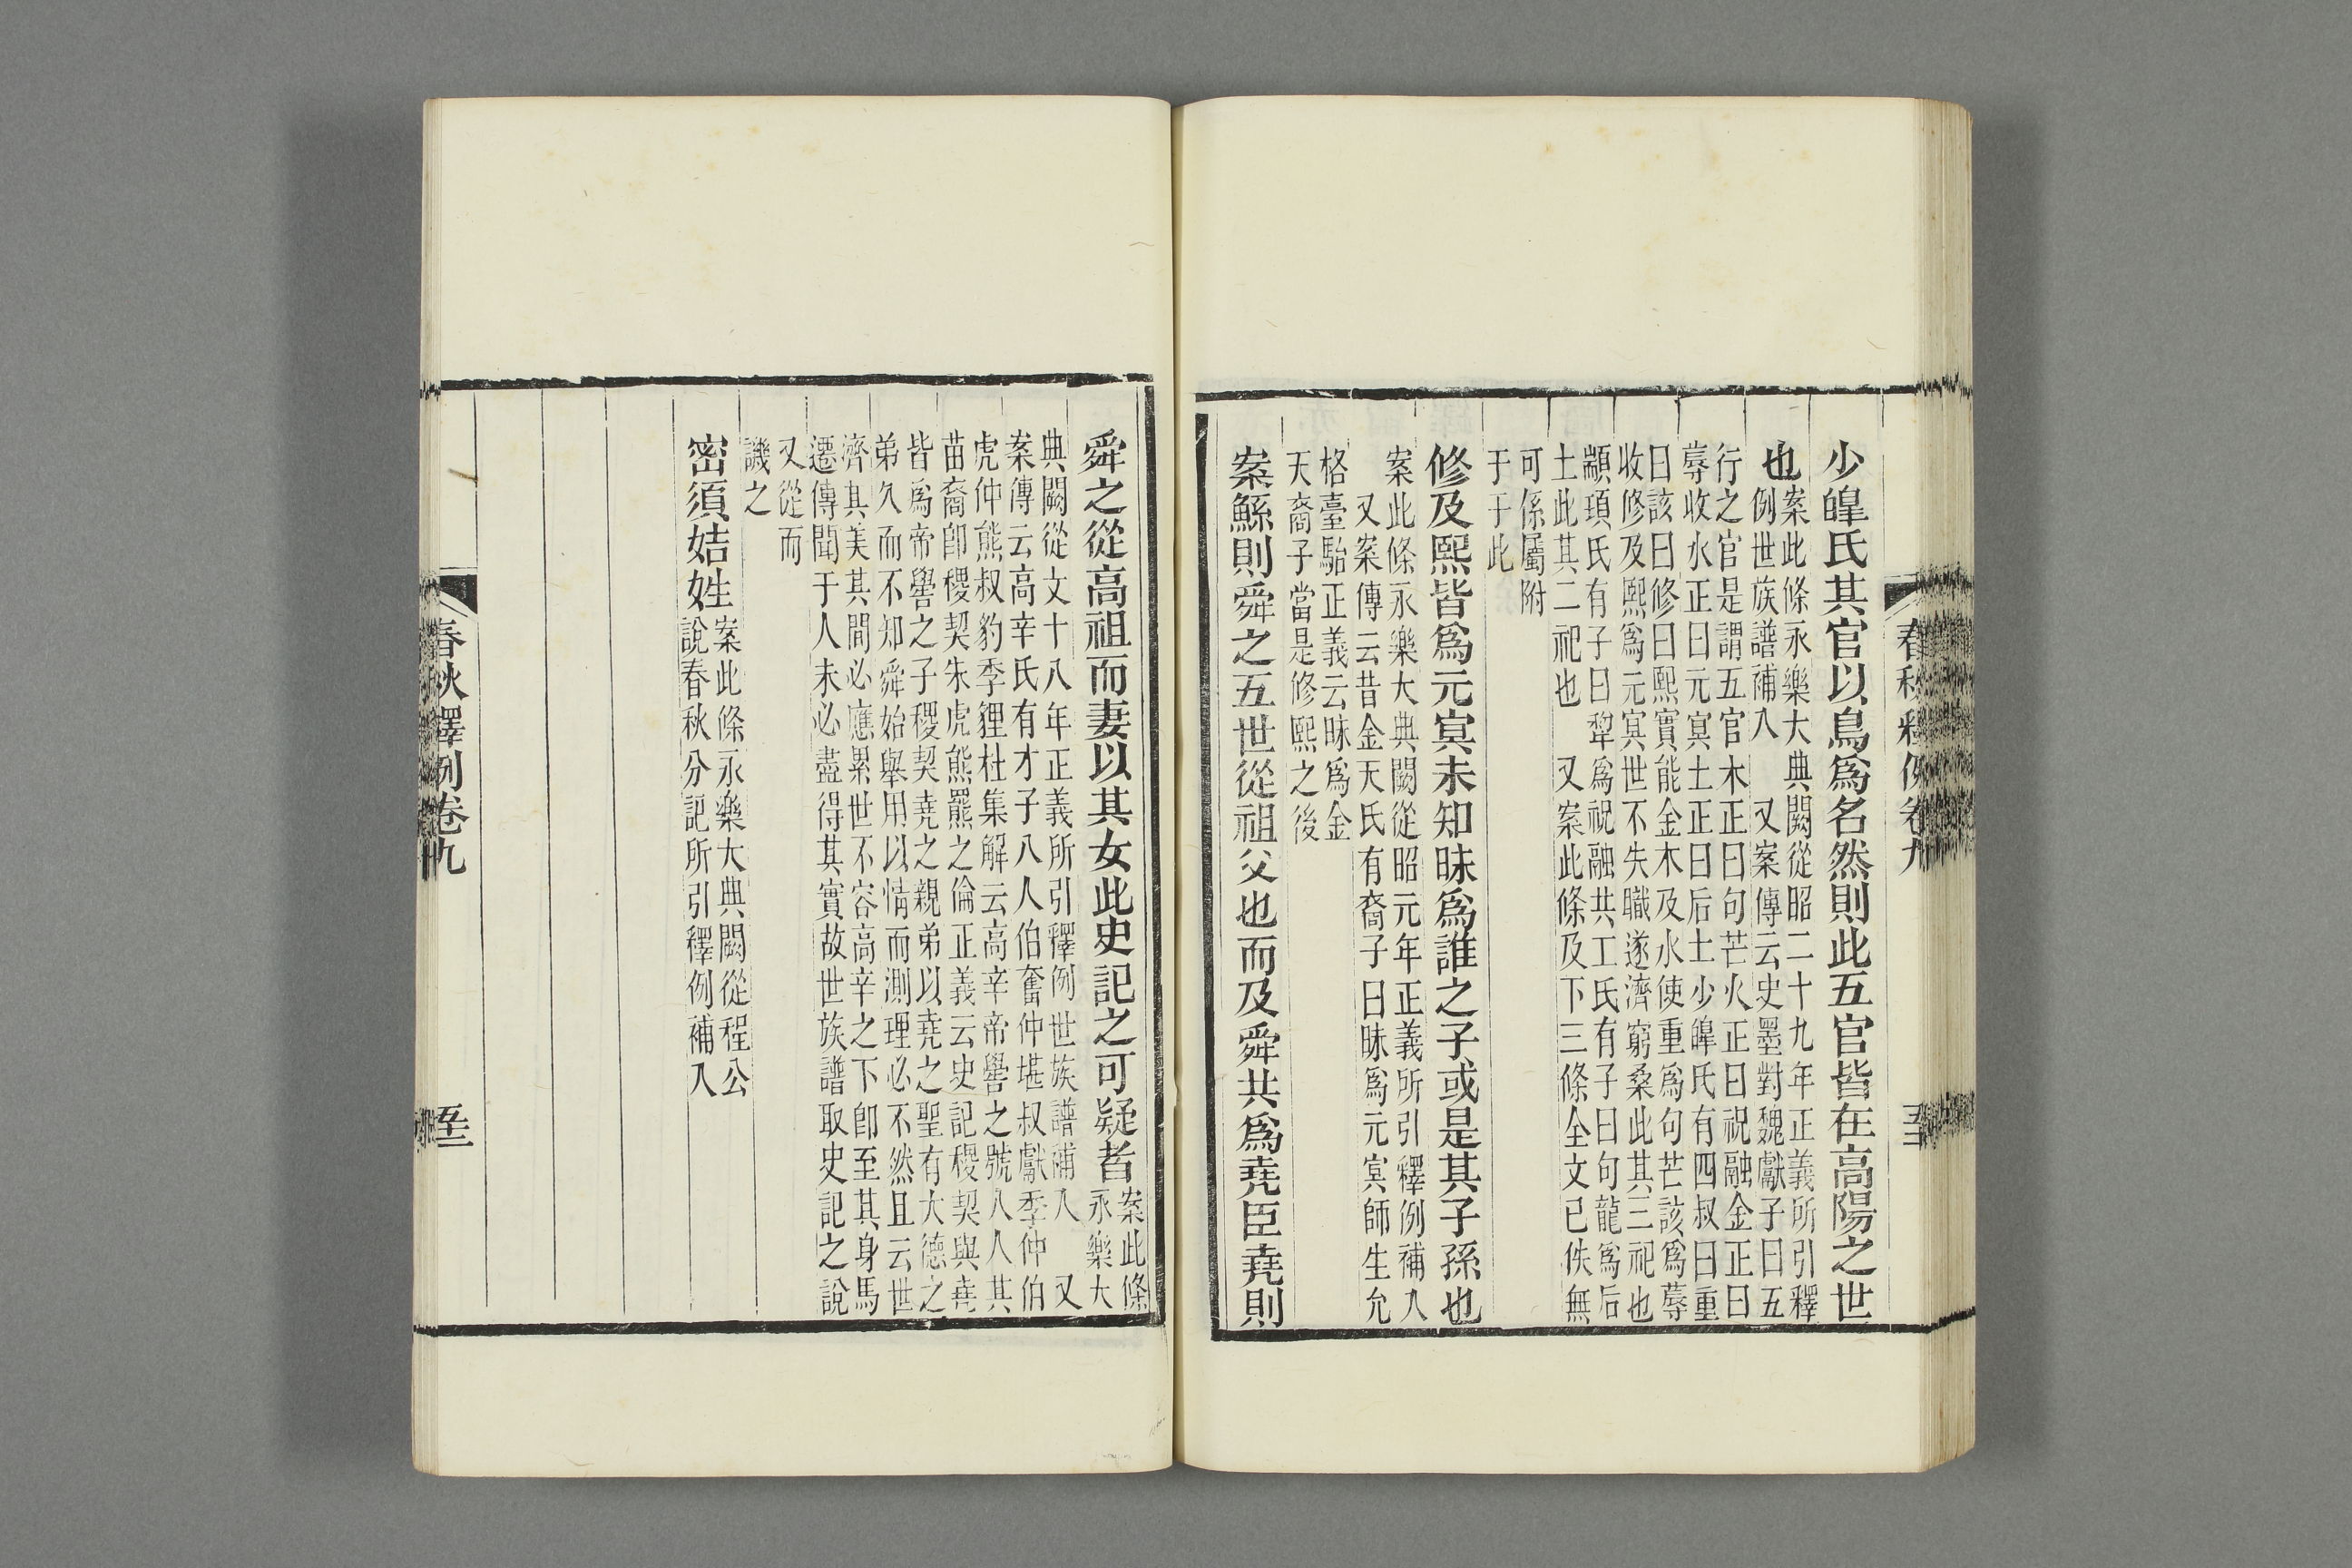 少皥氏其官以鳥爲名然則此五官皆在高陽之世
也
案此條永樂大典闕從昭二十九年正義所引釋
例世族譜補入　又案傳云史墨對魏獻子曰五
行之官是謂五官木正曰句芒火正曰祝融金正曰
蓐收水正曰元冥土正曰后土少皥氏有四叔曰重
曰該曰修曰熙實能金木及水使重爲句芒該爲蓐
收修及熙爲元冥世不失職遂濟窮桑此其三祀也
顓頊氏有子曰犂爲祝融共工氏有子曰句龍爲后
土此其二祀也　又案此條及下三條全文已佚無
可係屬附
于于此
修及熙皆爲元冥未知昧爲誰之子或是其子孫也
案此條永樂大典闕從昭元年正義所引釋例補入
又案傳云昔金天氏有裔子曰昧爲元冥師生允
格臺駘正義云昧爲金
天裔子當是修熙之後
案鯀則舜之五世從祖父也而及舜共爲堯臣堯則
舜之從高祖而妻以其女此史記之可疑者
案此條
永樂大
典闕從文十八年正義所引釋例世族譜補入　又
案傳云高辛氏有才子八人伯奮仲堪叔獻季仲伯
虎仲熊叔豹季貍杜集解云高辛帝嚳之號八人其
苗裔卽稷契朱虎熊羆之倫正義云史記稷契與堯
皆爲帝嚳之子稷契堯之親弟以堯之聖有大德之
弟久而不知舜始舉用以情而測理必不然且云世
濟其美其間必應累世不容高辛之下卽至其身馬
遷傳聞于人未必盡得其實故世族譜取史記之說
又從而
譏之
密須姞姓
案此條永樂大典闕從程公
說春秋分記所引釋例補入
春秋釋例卷九